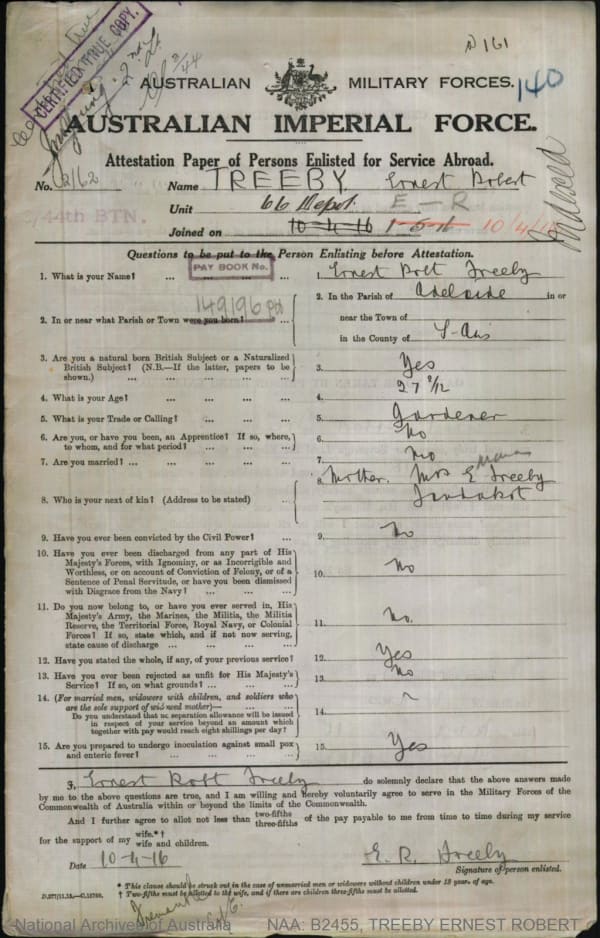 CERTIFIED TRUE COPY.
161
140
AUSTRALIAN MILITARY FORCES.
AUSTRALIAN IMPERIAL FORCE.
Attestation Paper of Persons Enlisted for Service Abroad.
No. 2162 Name TREEBY Ernest Robert
44th BTN.
Unit 66 Depot E-R
Joined on 10-4-16 1-5-16 10/4/16
Indexed
Questions to be put to the Person Enlisting before Attestation.
PAY BOOK No.
1. What is your Name? ... ... ... ... 1. Ernest Robt Treeby
149196
2. In or near what Parish or Town were you born? ... 2. In the Parish of Adelaide in or
near the Town of
in the County of S-Aus
3. Are you a natural born British Subject or a Naturalized
British Subject? (N.B.—If the latter, papers to be
shown.) ... ... ... ... ... 3. Yes
4. What is your Age? ... ... ... ... 4. 27 9/12
5. What is your Trade or Calling? ... ... ... 5. Gardener
6. Are you, or have you been, an Apprentice? If so, where,
to whom, and for what period? ... ... ... 6. No
7. Are you married? ... ... ... ... 7. No
8. Who is your next of kin? (Address to be stated) .. 8. Mother. Mrs E Treeby
Jandakot
9. Have you ever been convicted by the Civil Power? ... 9. No
10. Have you ever been discharged from any part of His
Majesty's Forces, with Ignominy, or as Incorrigible and
Worthless, or on account of Conviction of Felony, or of a
Sentence of Penal Servitude, or have you been dismissed
with Disgrace from the Navy? ... ... ... 10. No
11. Do you now belong to, or have you ever served in, His
Majesty's Army, the Marines, the Militia, the Militia
Reserve, the Territorial Force, Royal Navy, or Colonial
Forces? If so, state which, and if not now serving,
state cause of discharge ... ... ... ... 11. No.
12. Have you stated the whole, if any, of your previous service? 12. Yes
13. Have you ever been rejected as unfit for His Majesty's
Service? If so, on what grounds? ... ... ... 13. No
14. (For married men, widowers with children, and soldiers who
are the sole support of widowed mother)— ... ...
Do you understand that no separation allowance will be issued
in respect of your service beyond an amount which
together with pay would reach eight shillings per day? 14. ~
15. Are you prepared to undergo inoculation against small pox
and enteric fever? ... ... ... ... 15. Yes
I, Ernest Robt Treeby do solemnly declare that the above answers made
by me to the above questions are true, and I am willing and hereby voluntarily agree to serve in the Military Forces of the
Commonwealth of Australia within or beyond the limits of the Commonwealth.
And I further agree to allot not less than two-fifths three-fifths of the pay payable to me from time to time during my service
for the support of my wife.*† wife and children.
Date 10-4-16 E. R. Treeby
Signature of person enlisted.
* This clause should be struck out in the case of unmarried men or widowers without children under 18 years of age.
† Two-fifths must be allotted to the wife, and if there are children three-fifths must be allotted.
National Archives of Australia NAA: B2455, TREEBY ERNEST ROBERT